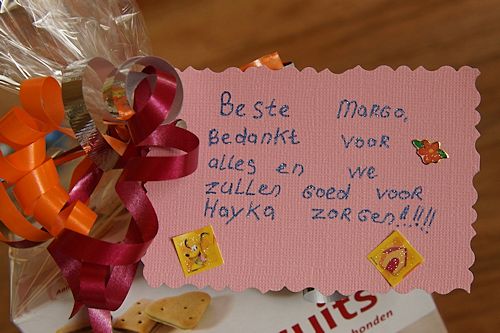 Beste Margo,
Bedankt voor
alles en we
zullen goed voor
Hayka zorgen!!!!!
uits
honden